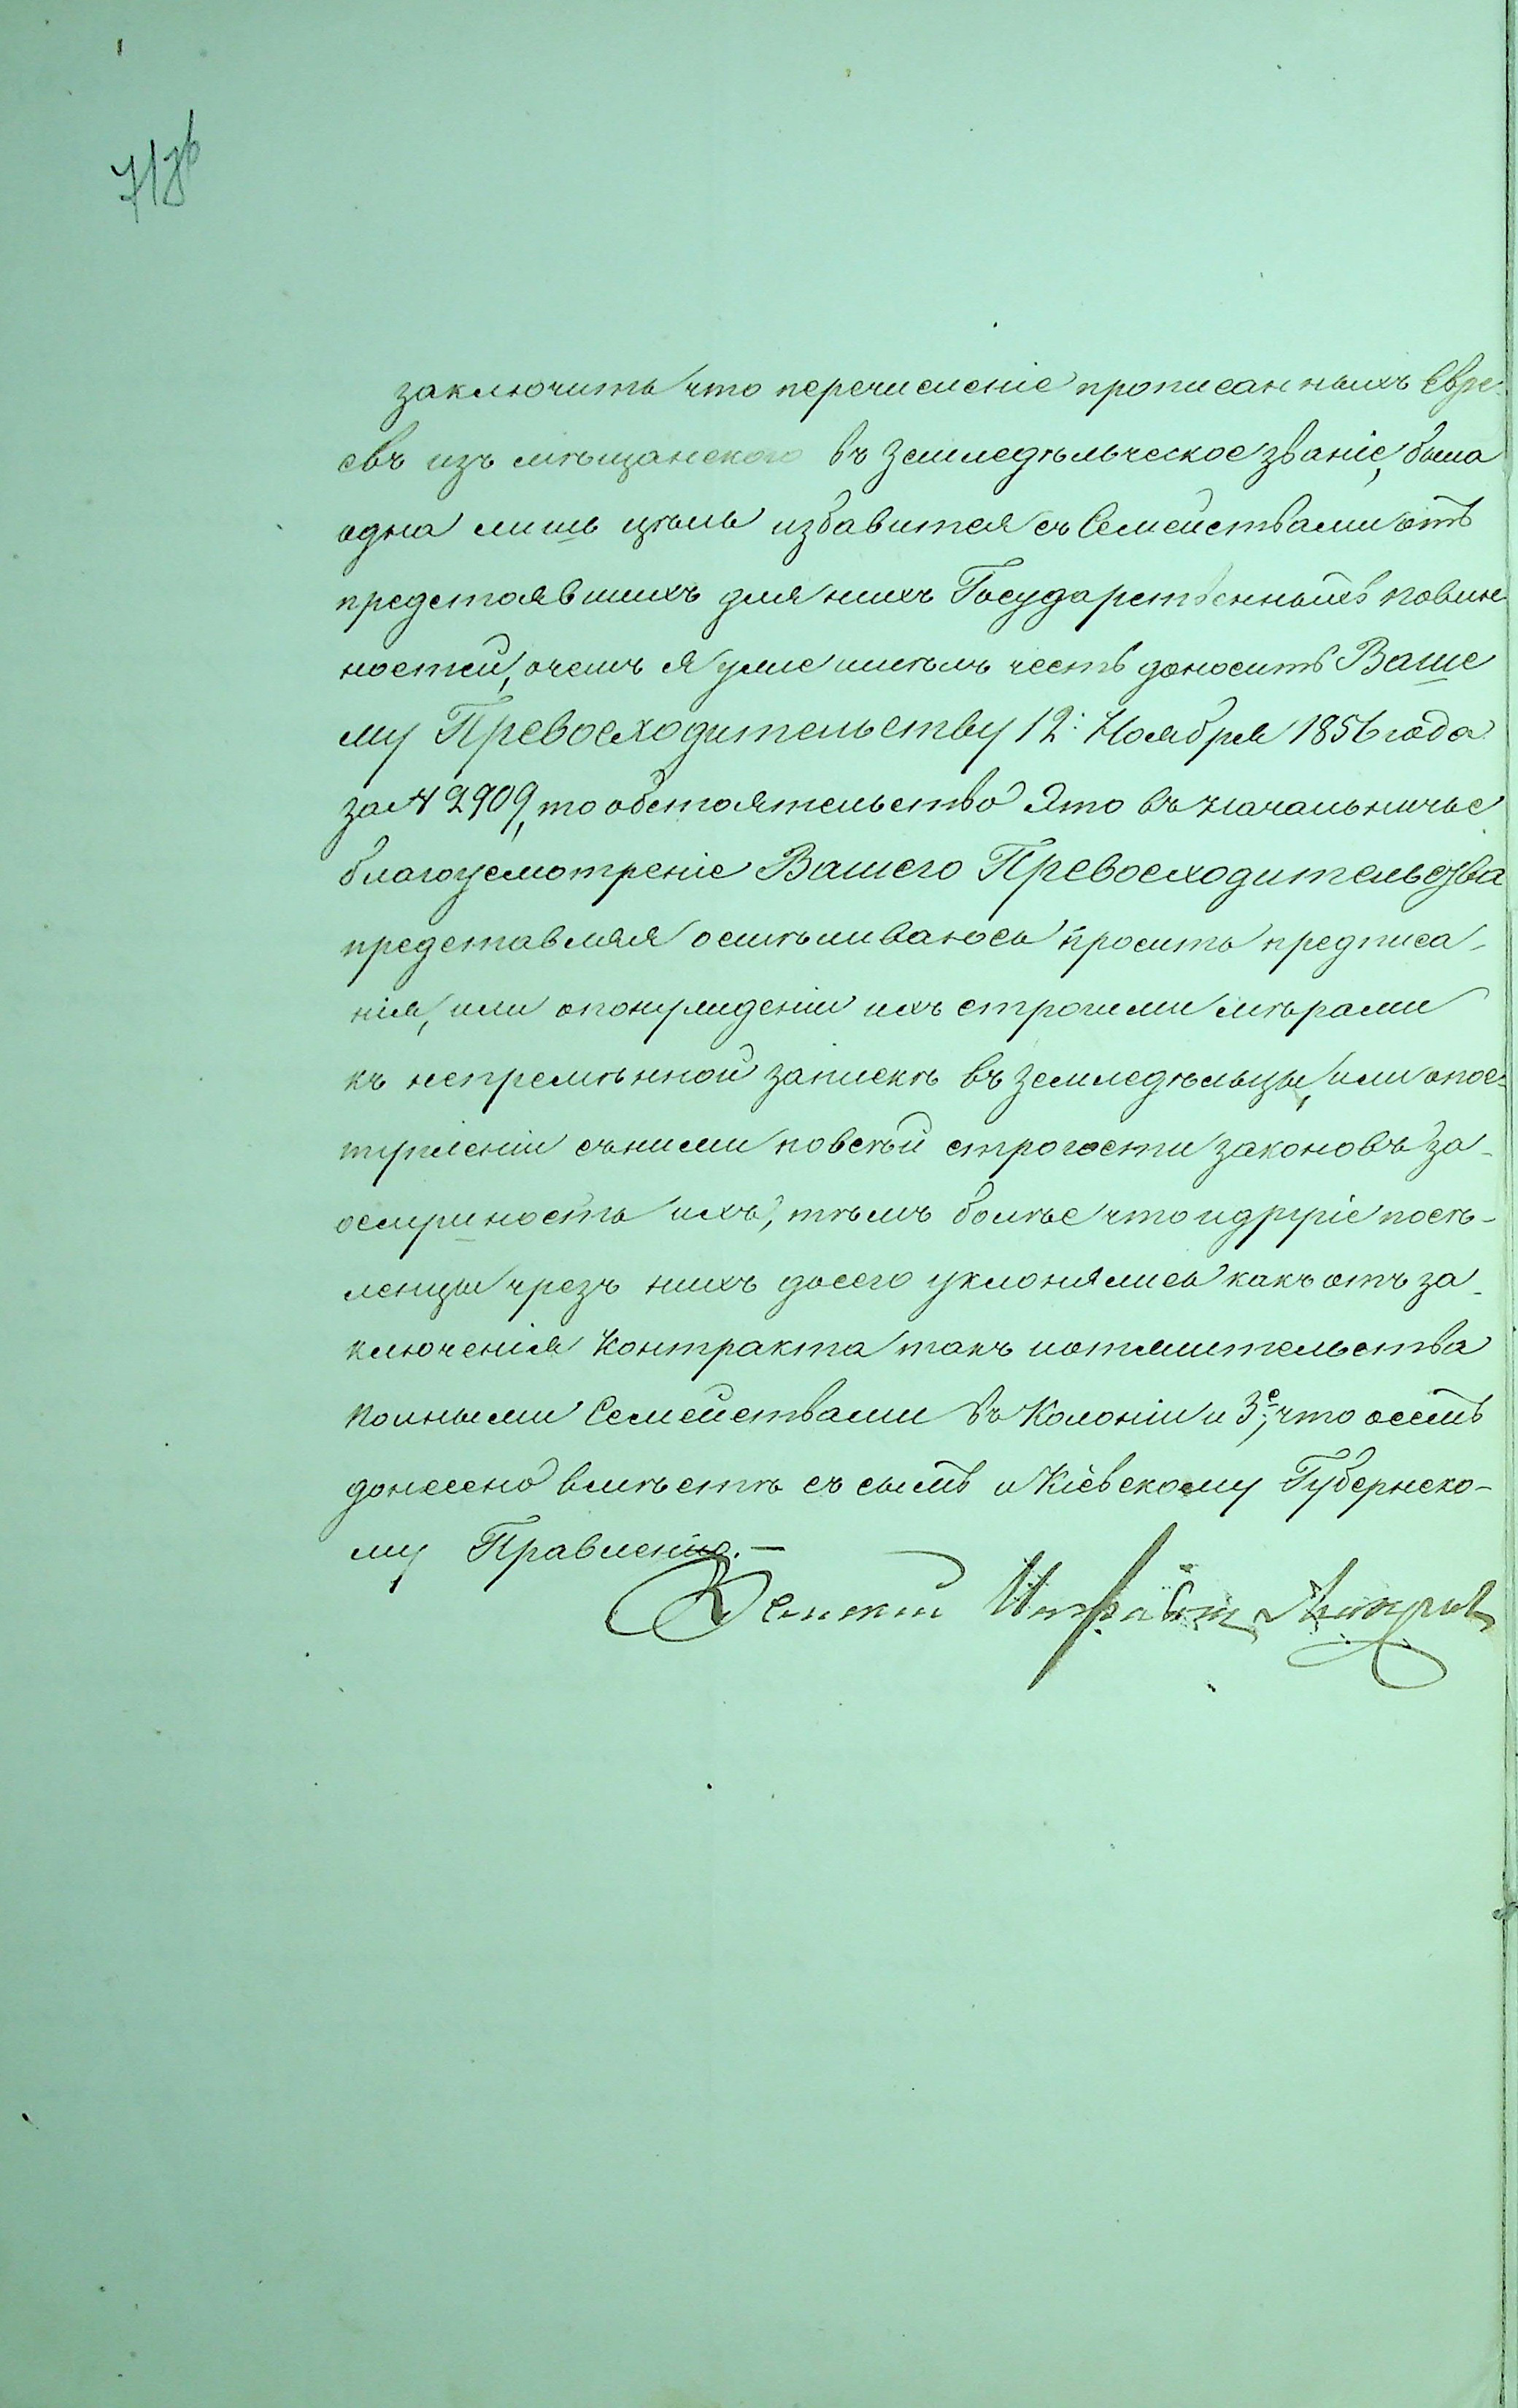 заключить что перечисленіе прописанныхъ Евре-
евъ изъ мѣщанского въ земледѣльческое званіе, была
одна лишь цѣль избавится съ Семействами отъ
предстоявшихъ для нихъ Государственныхъ повин-
ностей, очемъ я уже имѣлъ честь доносить Ваше
му Превосходительству 12: Ноября 1856 года
за № 2909, то обстоятельство это въ начальничье
благоусмотреніе Вашего Превосходительства
представляя осмѣливаюсь просить предписа-
нія, или опонужденіи ихъ строгими мѣрами
къ непремѣнной запискѣ въ земледѣльцы, или опос-
тупленіи съними повсѣй строгости законовъ за-
ослушность ихъ, тѣмъ болѣе что идругіе посѣ-
ленцы чрезъ нихъ досего уклонялись какъ отъ за-
ключенія Контракта такъ иотжительства
полными Семействами въ Колоніи и 3е, что осемъ
донесено вмѣстѣ съ симъ и Кіевскому Губернско-
му Правленію.—
Земскій Исправникъ